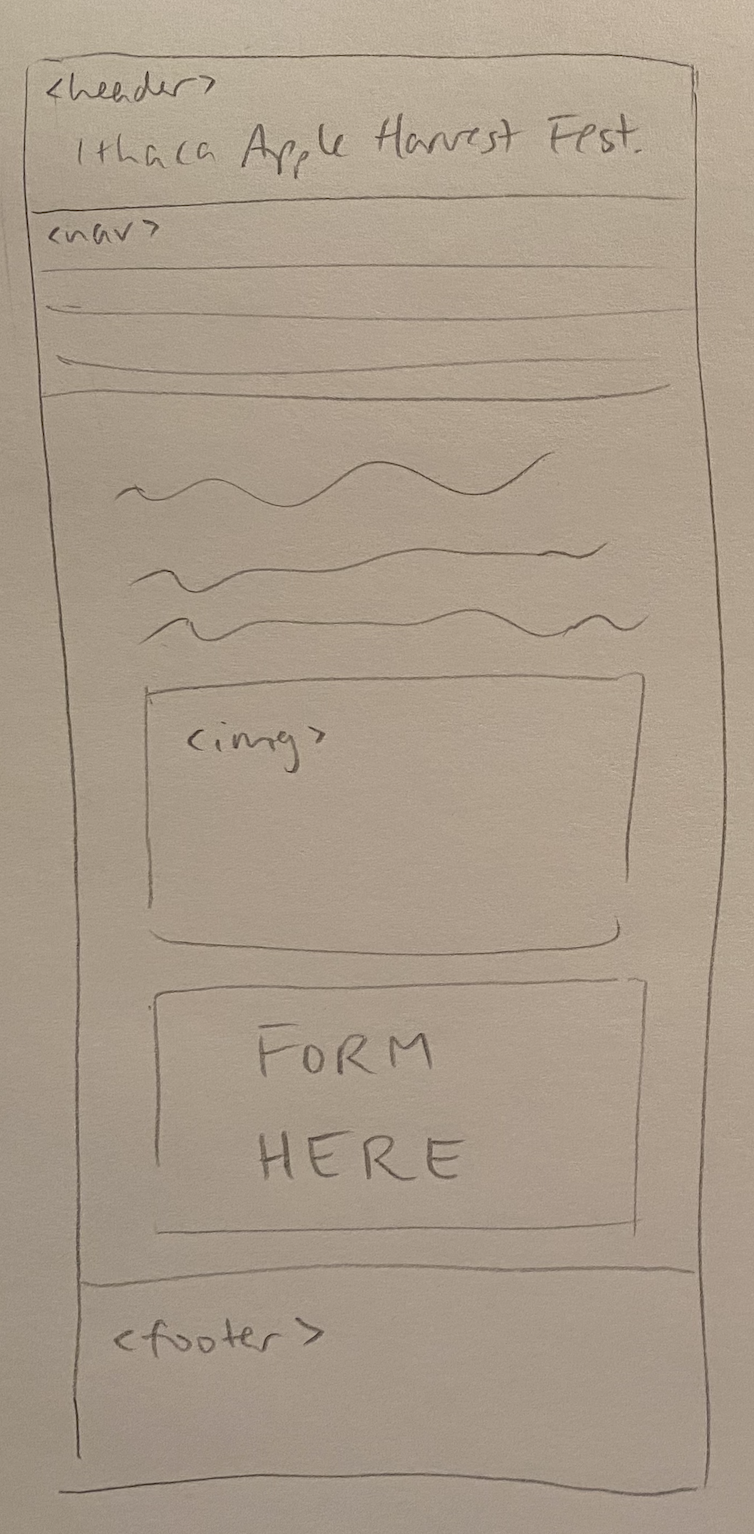 <header>
Ithaca Apple Harvest Fest.
<nav>
<img>
FORM
HERE
<footer>